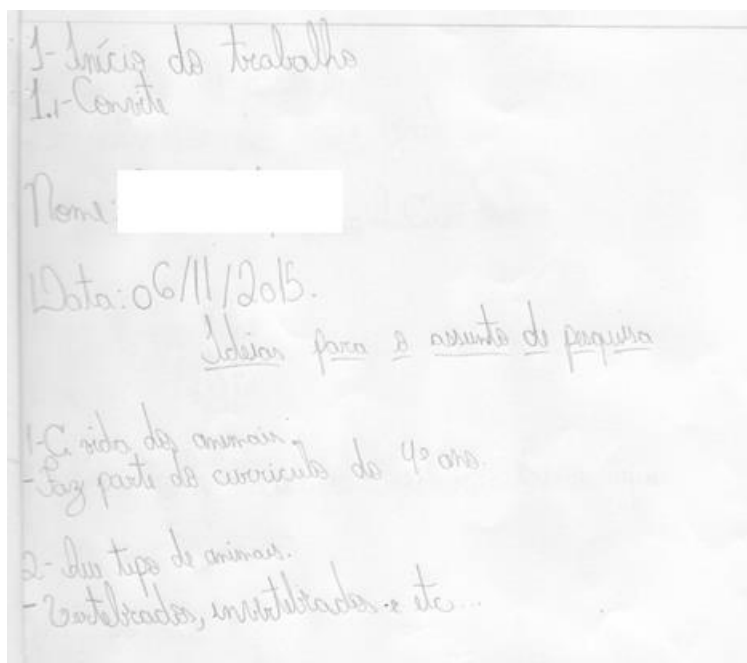 1- Início do trabalho
1.1-Convite
Nome:
Data: 06/11/2015.
Ideias para o assunto de pesquisa
1-A vida dos animais.
-Faz parte do curriculo do 4º ano.
2- tipo de animais.
- Vertebrados, invertebrados e etc...